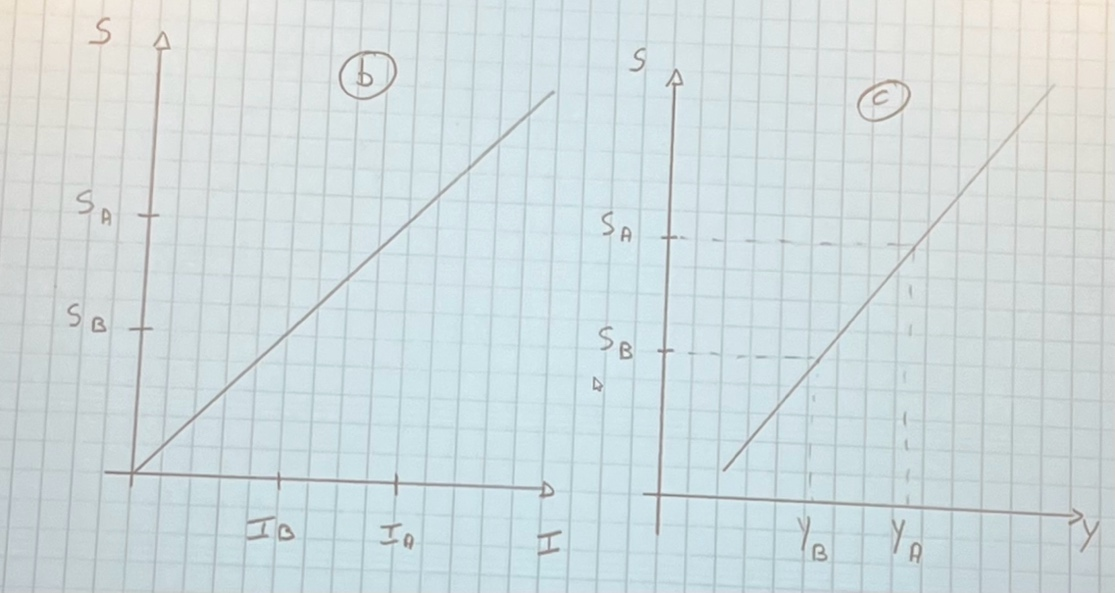 S
b
S A
S B
I B
I A
I
S
c
S A
S B
Y B
Y A
Y